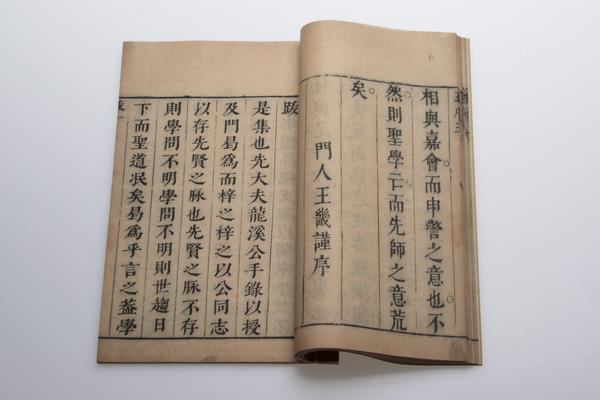 相與嘉會而申警之意也不
然則聖學亡而先師之意荒
矣
門人王畿謹序
跋
是集也先大夫龍溪公手錄以授
及門曷為而梓之以公同志
以存先賢之脉也先賢之脉不存
則學問不明學問不明則世趨日
下而聖道泯矣曷為乎言之葢學